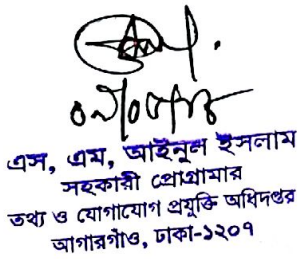 এস, এম, আইনুল ইসলাম
সহকারী প্রোগ্রামার
তথ্য ও যোগাযোগ প্রযুক্তি অধিদপ্তর
আগারগাঁও, ঢাকা-১২০৭